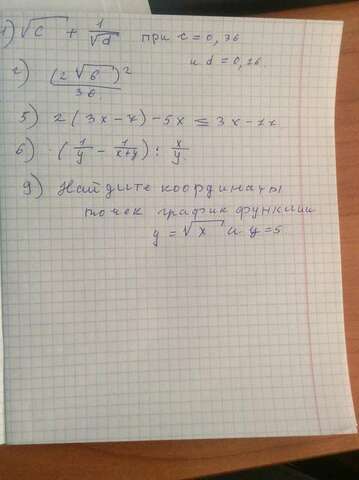 1) √c + 1/√d при c = 0,36
и d = 0,16.
2) (2√6)²/36
5) 2(3x - 7) - 5x ≤ 3x - 11
6) (1/y - 1/(x+y)) : x/y
9) Найдите координаты
точек график функции
y = √x и y = 5